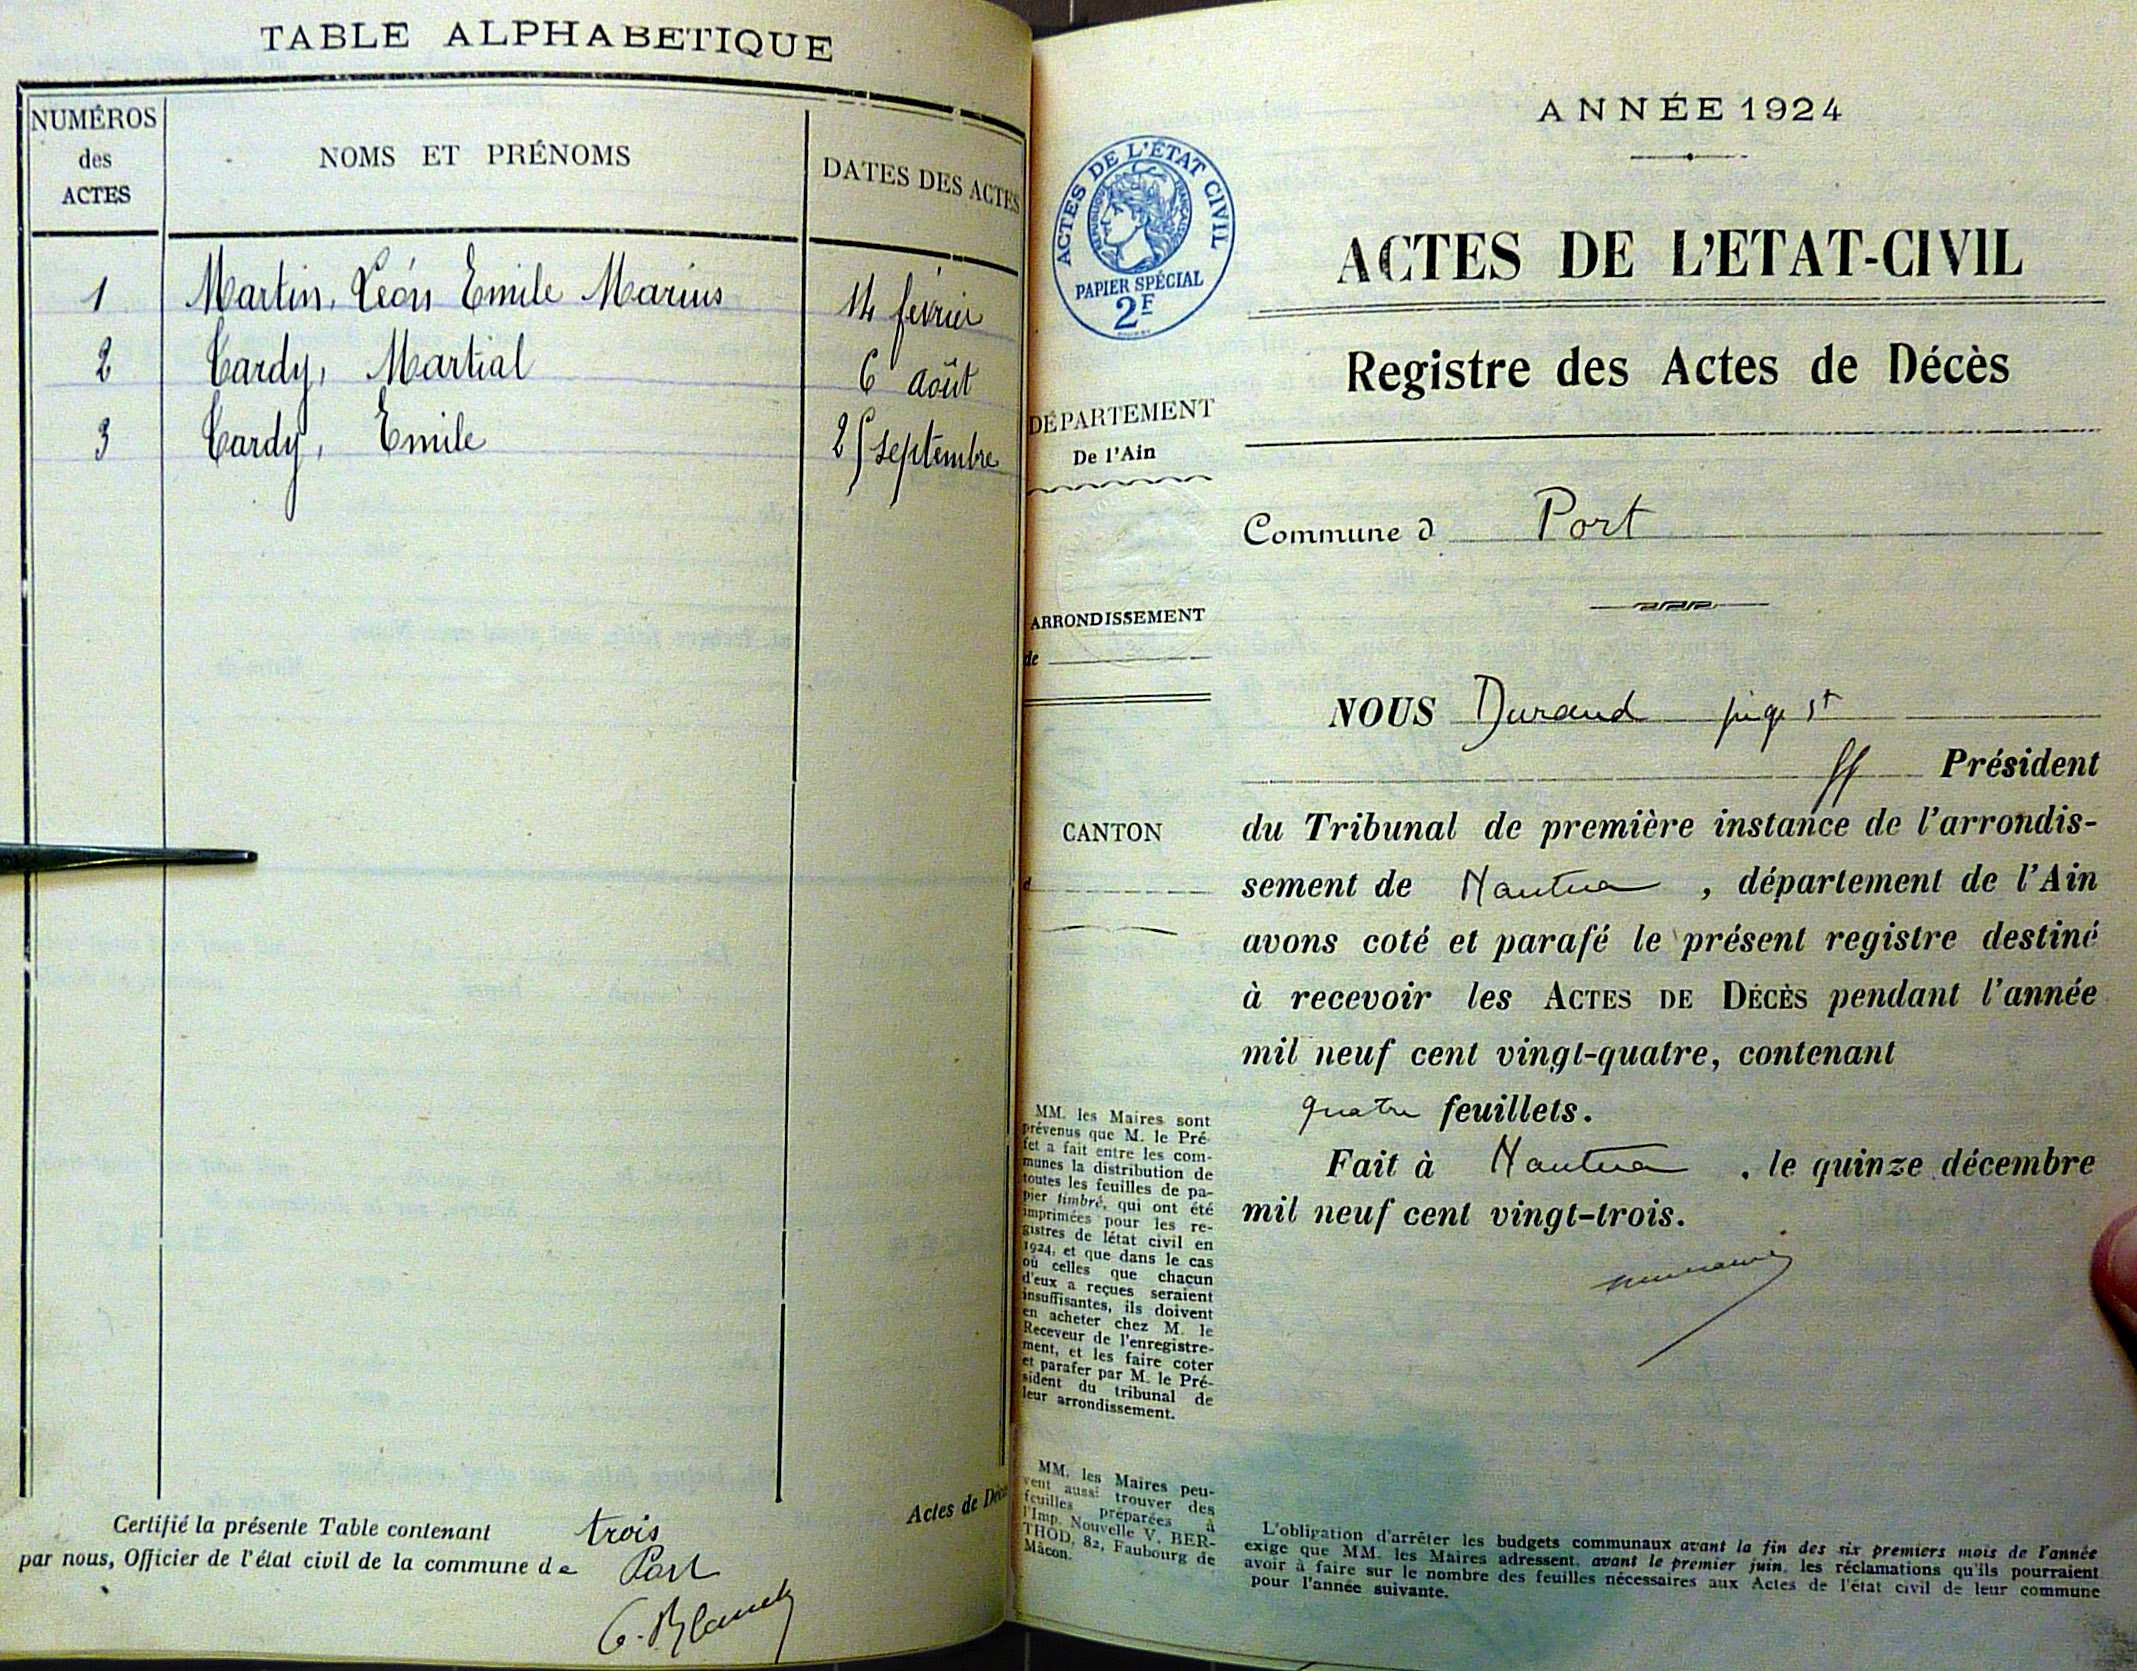 TABLE ALPHABETIQUE
NUMÉROS
des
ACTES
NOMS ET PRÉNOMS
DATES DES ACTES
1 Martin, Léon Emile Marius 14 février
2 Tardy, Martial 6 août
3 Tardy, Emile 25 septembre
Certifié la présente Table contenant trois
par nous, Officier de l'état civil de la commune de Port
Actes de Décès
ANNÉE 1924
ACTES DE L'ÉTAT CIVIL
RÉPUBLIQUE FRANÇAISE
PAPIER SPÉCIAL
2F
ACTES DE L'ETAT-CIVIL
Registre des Actes de Décès
DÉPARTEMENT
De l'Ain
Commune d Port
ARRONDISSEMENT
de
CANTON
d
NOUS Durand juge st
ff Président
du Tribunal de première instance de l'arrondis-
sement de Nantua, département de l'Ain
avons coté et parafé le présent registre destiné
à recevoir les ACTES DE DÉCÈS pendant l'année
mil neuf cent vingt-quatre, contenant
quatre feuillets.
Fait à Nantua, le quinze décembre
mil neuf cent vingt-trois.
MM. les Maires sont
prévenus que M. le Pré-
fet a fait entre les com-
munes la distribution de
toutes les feuilles de pa-
pier timbré, qui ont été
imprimées pour les re-
gistres de létat civil en
1924, et que dans le cas
où celles que chacun
d'eux a reçues seraient
insuffisantes, ils doivent
en acheter chez M. le
Receveur de l'enregistre-
ment, et les faire coter
et parafer par M. le Pré-
sident du tribunal de
leur arrondissement.
MM. les Maires peu-
vent aussi trouver des
feuilles préparées à
l'Imp. Nouvelle V. BER-
THOD, 82, Faubourg de
Mâcon.
L'obligation d'arrêter les budgets communaux avant la fin des six premiers mois de l'année
exige que MM. les Maires adressent, avant le premier juin, les réclamations qu'ils pourraient
avoir à faire sur le nombre des feuilles nécessaires aux Actes de l'état civil de leur commune
pour l'année suivante.